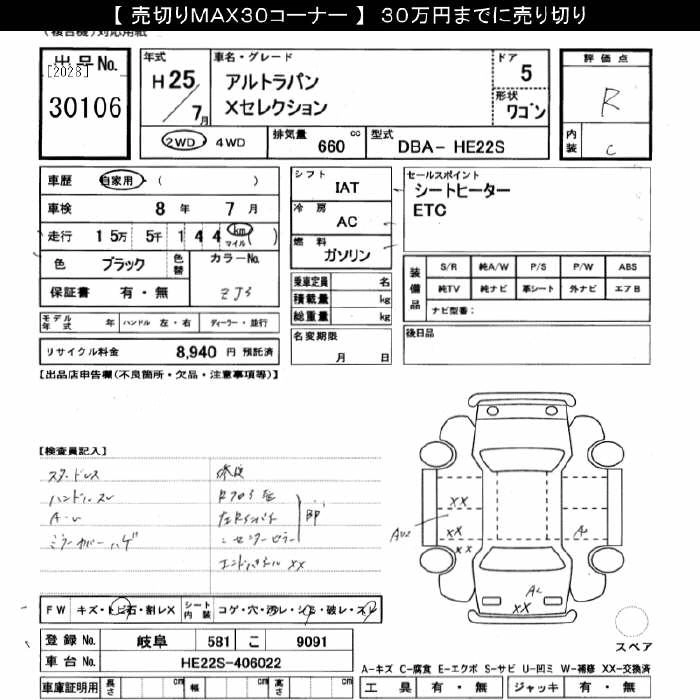 【 売切りMAX30コーナー 】 30万円までに売り切り
(複合機)対応用紙
出品No.
[2028]
30106
年式
H25
7月
車名・グレード
アルトラパン
Xセレクション
ドア
5
形状
ワゴン
評価点
R
内装
C
2WD・4WD
排気量
660
cc
型式
DBA- HE22S
車歴
自家用・(　　　)
車検
8 年 7 月
走行
15万 5千 144 km マイル ( )
色
ブラック
色替
カラーNo.
保証書
有・無
ZJ3
シフト
IAT
冷房
AC
燃料
ガソリン
セールスポイント
シートヒーター
ETC
乗車定員 名
積載量 kg
総重量 kg
装備品
S/R 純A/W P/S P/W ABS
純TV 純ナビ 革シート 外ナビ エアB
ナビ型番:
モデル年式 年 ハンドル 左・右 ディーラー・並行
リサイクル料金 8,940 円 預託済
名変期限
月 日
後日品
【出品店申告欄(不良箇所・欠品・注意事項等)】
【検査員記入】
スタッドレス
ハンドルスレ
A-U
ミラーカバーハゲ
修復
エンドパネル XX
XX
AU2
XX
XX
A2
A2
XX
FW キズ・トビ石・割レX シート内装 コゲ・穴・汚レ・シミ・破レ・スレ
登録 No. 岐阜 581 こ 9091
車台 No. HE22S-406022
車庫証明用 長さ cm 幅 cm 高さ cm
スペア
A-キズ C-腐食 E-エクボ S-サビ U-凹ミ W-補修 XX-交換済
工具 有・無 ジャッキ 有・無